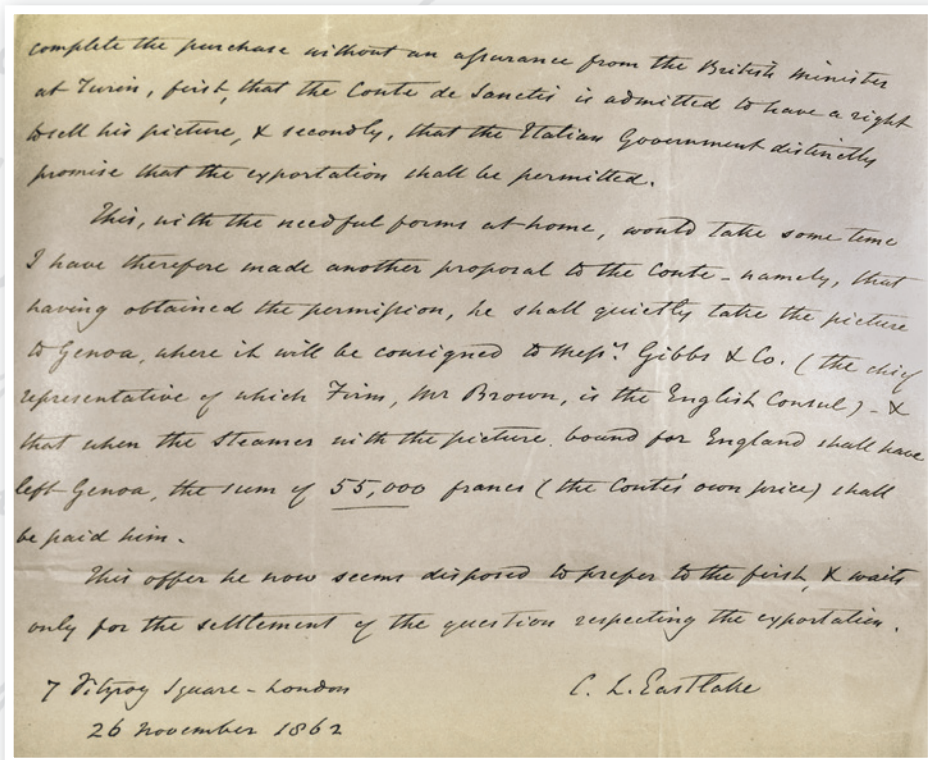 complete the purchase without an assurance from the British Minister
at Turin, first, that the Conte de Sanctis is admitted to have a right
to sell his picture, & secondly, that the Italian Government distinctly
promise that the exportation shall be permitted.
This, with the needful forms at home, would take some time
I have therefore made another proposal to the Conte - namely, that
having obtained the permission, he shall quietly take the picture
to Genoa, where it will be consigned to Messrs Gibbs & Co. (the chief
representative of which Firm, Mr Brown, is the English Consul) - &
that when the Steamer with the picture bound for England shall have
left Genoa, the sum of 55,000 francs (the Conte's own price) shall
be paid him.
This offer he now seems disposed to prefer to the first, & waits
only for the settlement of the question respecting the exportation.
7 Fitzroy Square - London
C. L. Eastlake
26 November 1862